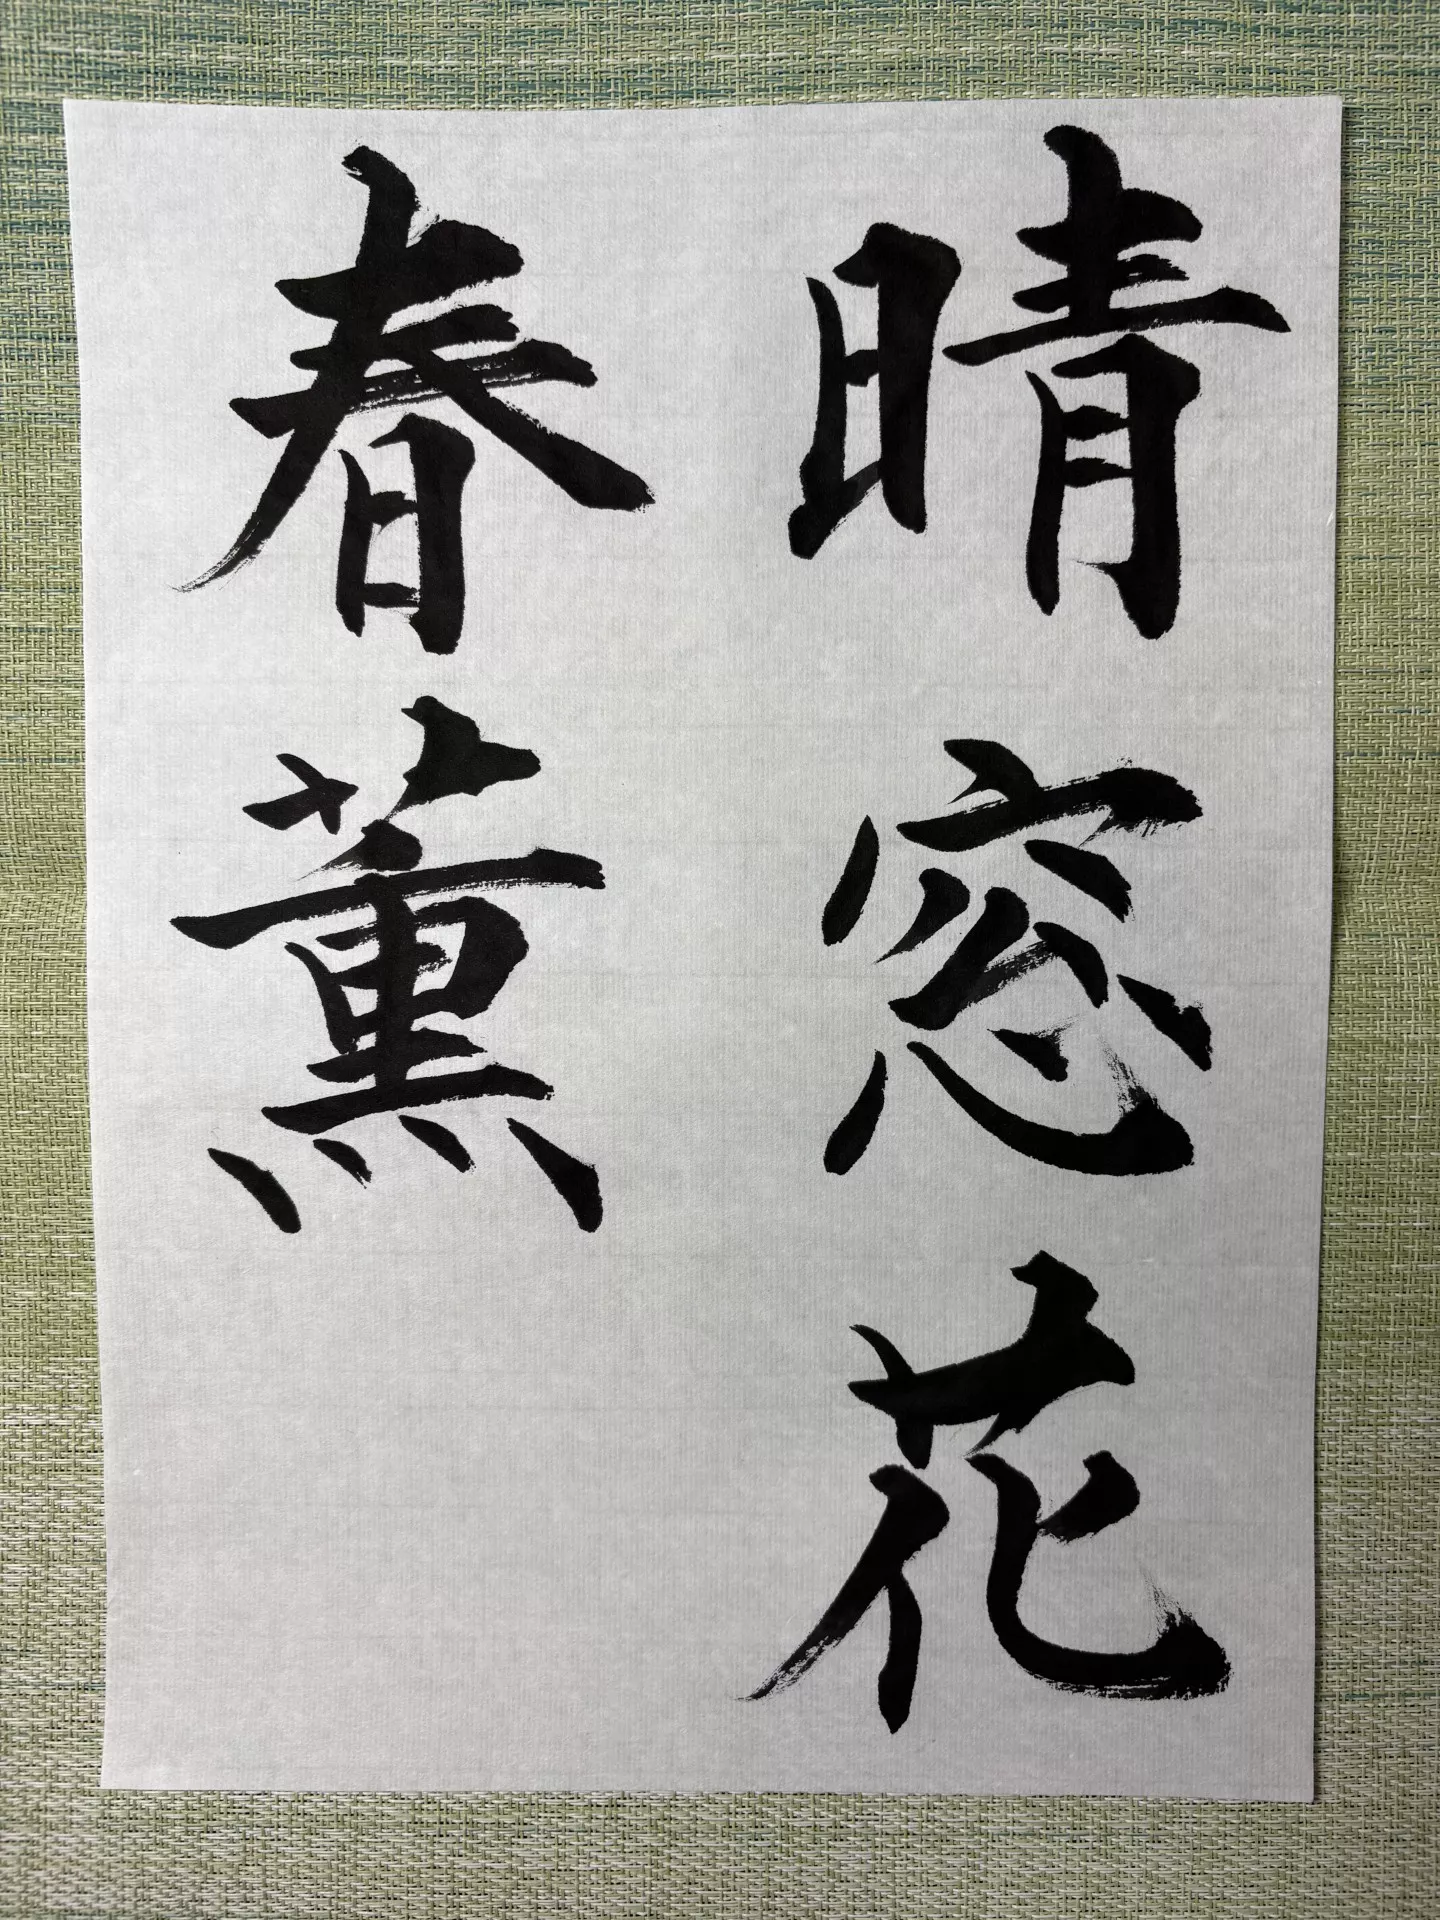 晴窓花
春薫